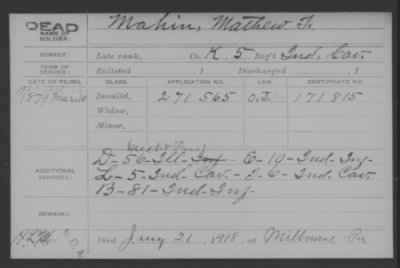 DEAD
NAME OF SOLDIER:
Mahin, Mathew T.
SERVICE:
Late rank, Co. K. 5 Reg't Ind. Cav.
TERM OF SERVICE:
Enlisted 1 Discharged 1
DATE OF FILING. CLASS. APPLICATION NO. LAW. CERTIFICATE NO.
1879 Invalid, 271 565 O.L. 171 815
Widow,
Minor,
ADDITIONAL SERVICES:
D-56-Ill-Inf E-19-Ind. Inf
L-5-Ind. Cav.- I-6-Ind. Cav
B-81-Ind. Inf
REMARKS:
Died Jany 21, 1918, at Milbourne